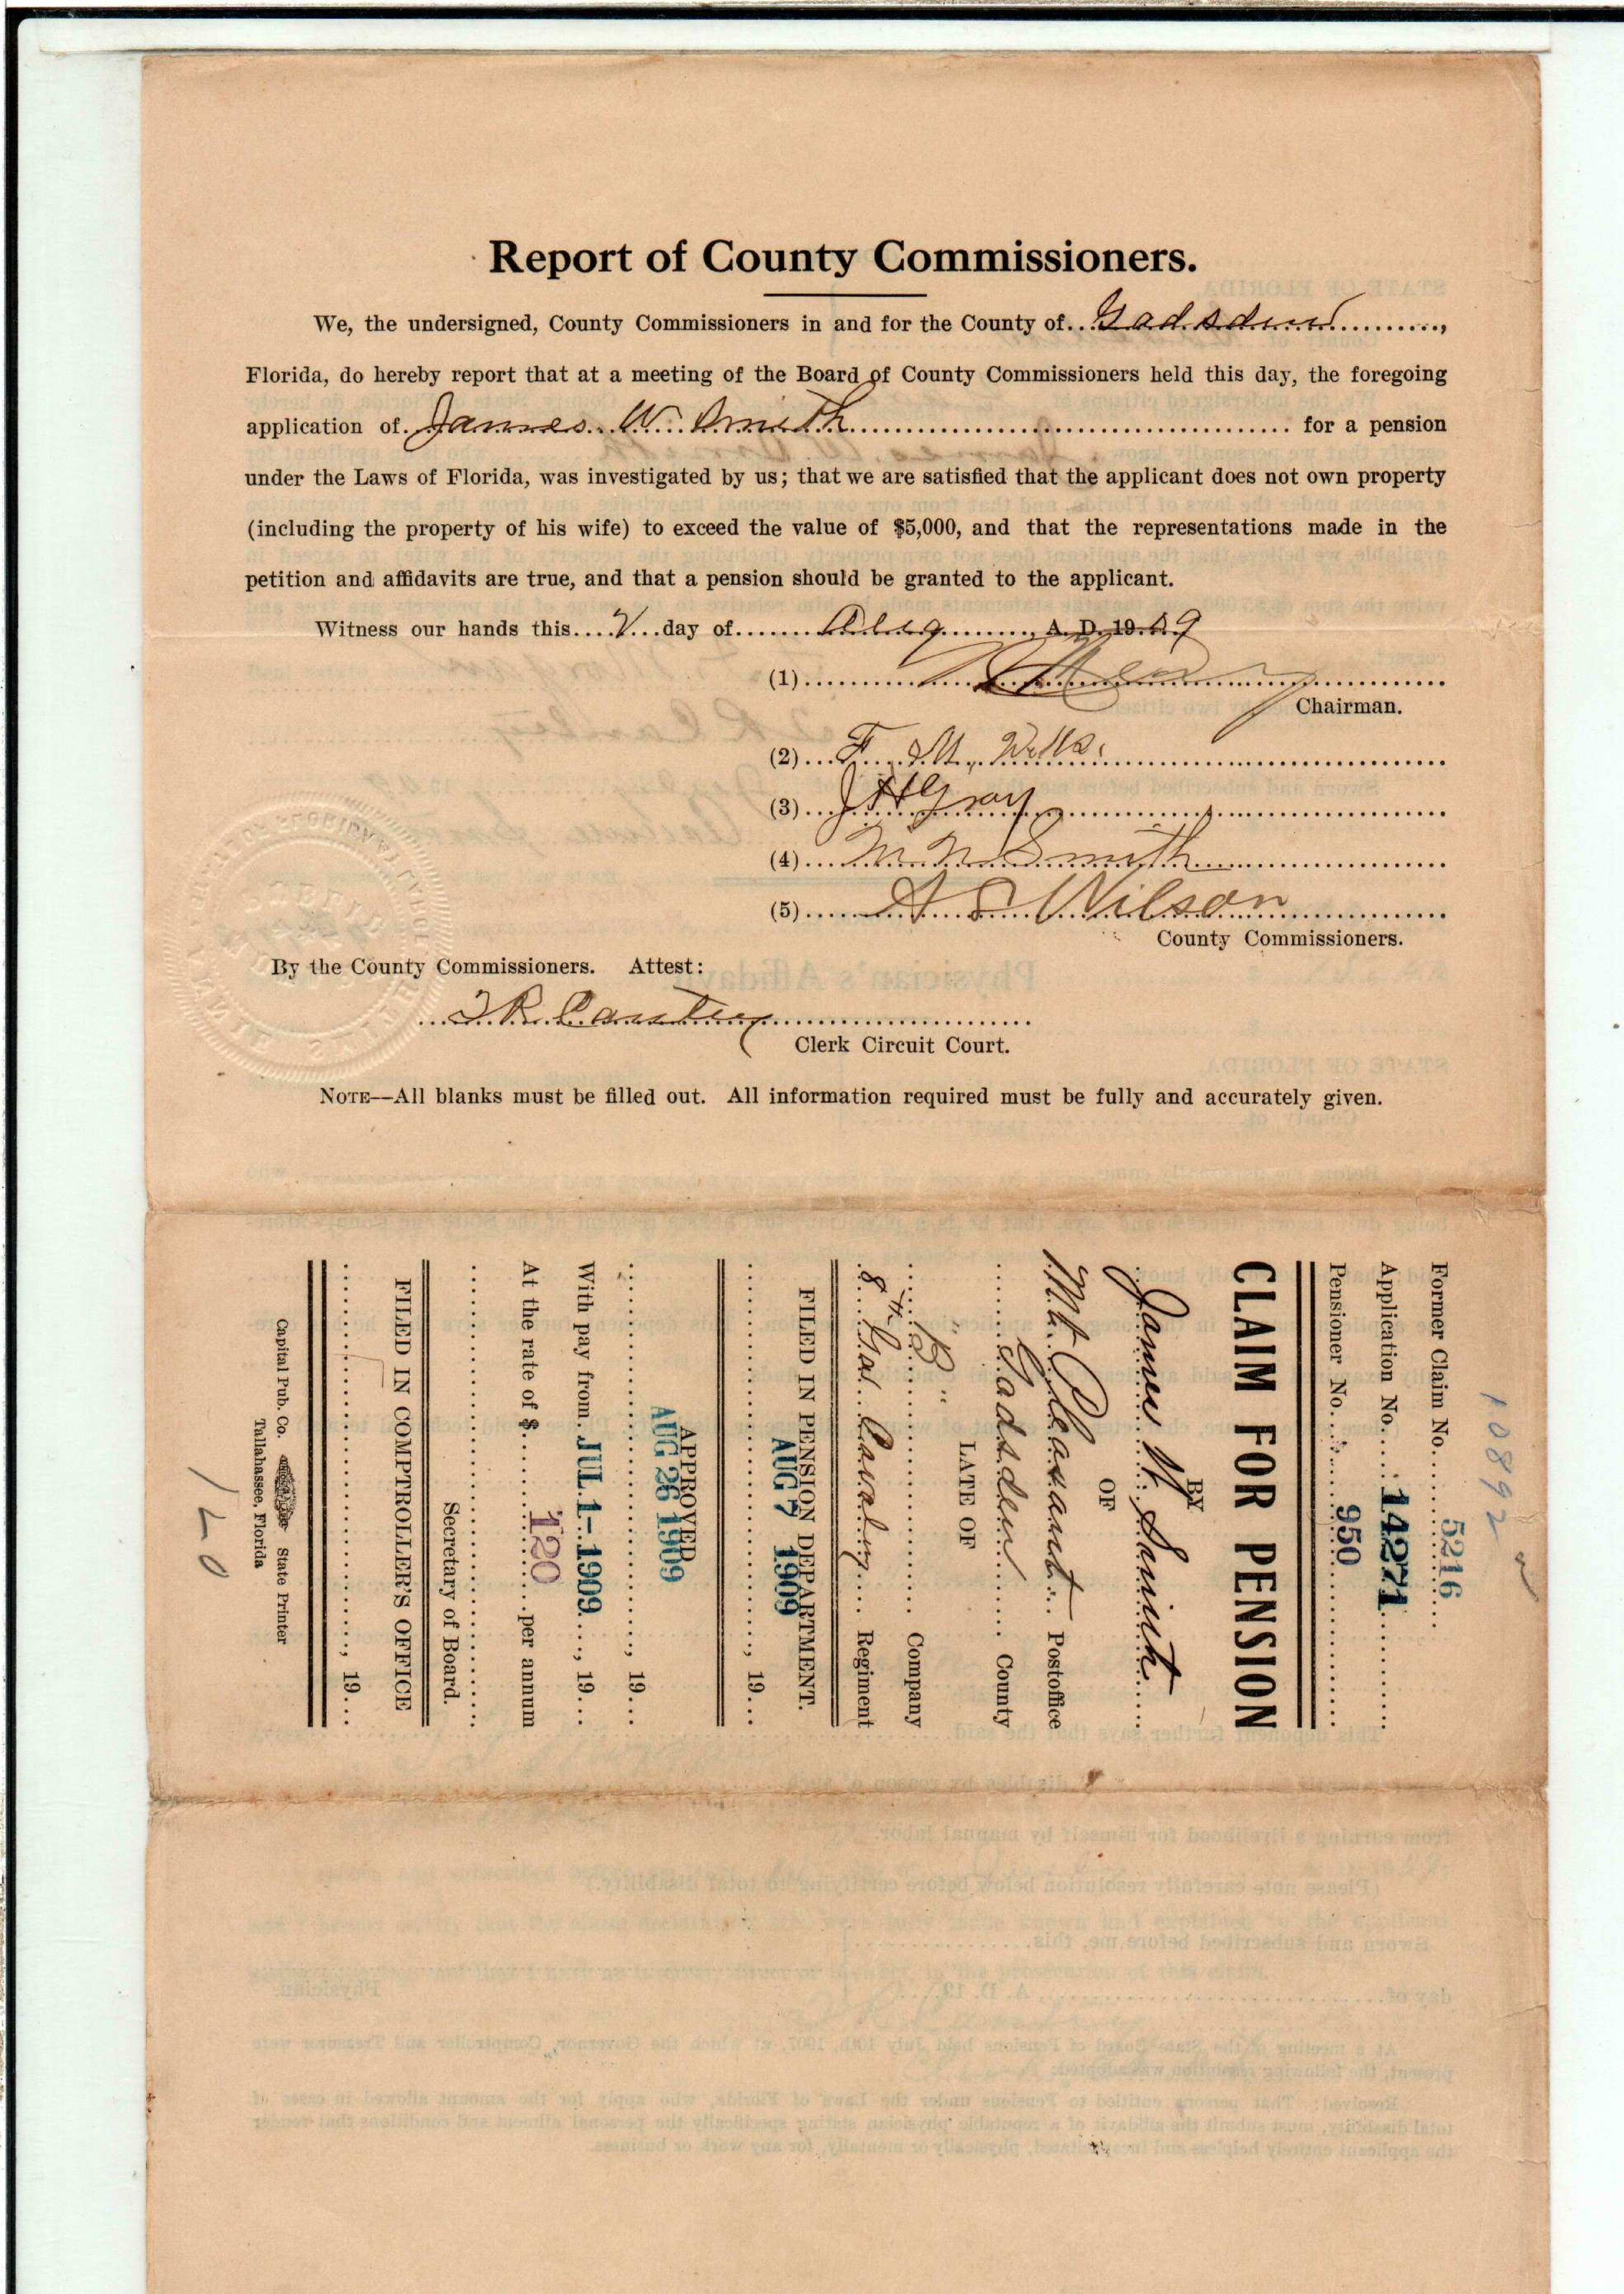 Report of County Commissioners.
We, the undersigned, County Commissioners in and for the County of Gadsden,
Florida, do hereby report that at a meeting of the Board of County Commissioners held this day, the foregoing
application of James W. Smith for a pension
under the Laws of Florida, was investigated by us; that we are satisfied that the applicant does not own property
(including the property of his wife) to exceed the value of $5,000, and that the representations made in the
petition and affidavits are true, and that a pension should be granted to the applicant.
Witness our hands this day of Aug, A. D. 1909
(1)
Chairman.
(2) F. M. Wells
(3) J H Gray
(4) M. N. Smith
(5) A S Wilson
County Commissioners.
By the County Commissioners. Attest:
Clerk Circuit Court.
NOTE—All blanks must be filled out. All information required must be fully and accurately given.
10892
Former Claim No. 5216
Application No. 14271
Pensioner No. 950
CLAIM FOR PENSION
BY
James W. Smith
OF
Mt. Pleasant Postoffice
Gadsden County
LATE OF
"B" Company
8th Ga. Cavalry Regiment
FILED IN PENSION DEPARTMENT.
AUG 7 1909
, 19
APPROVED
AUG 26 1909
, 19
With pay from JUL 1-1909, 19
At the rate of $ 120 per annum
Secretary of Board.
FILED IN COMPTROLLER'S OFFICE
, 19
Capital Pub. Co. State Printer
Tallahassee, Florida
120